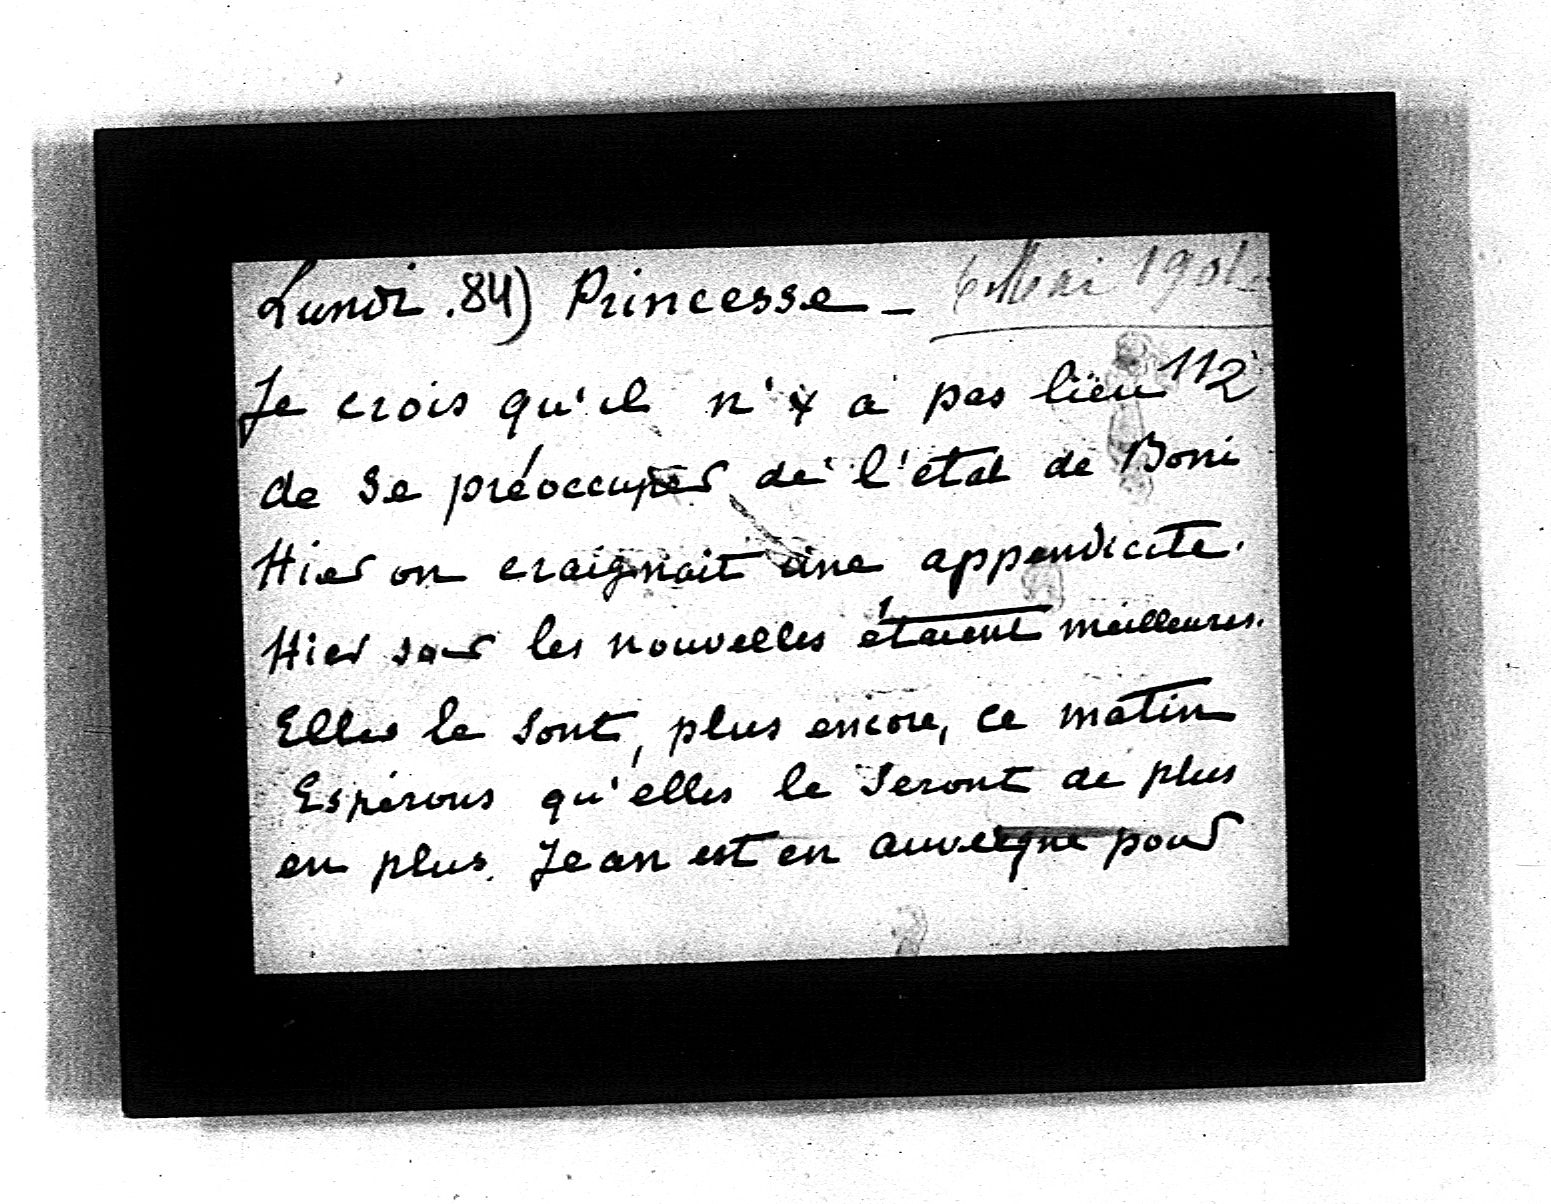 Lundi . 84) Princesse – 6 Mai 1901
Je crois qu'il n'y a pas lieu 112
de se préoccuper de l'état de Boni
Hier on craignait une appendicite.
Hier soir les nouvelles étaient meilleures.
Elles le sont, plus encore, ce matin
Espérons qu'elles le seront de plus
en plus. Jean est en auvergne pour